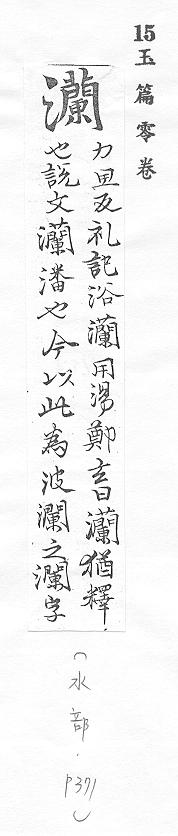 15玉篇零卷
灡
力旦反礼記浴灡用湯鄭玄曰灡猶釋
也說文灡潘也今以此為波瀾之瀾字
(水部．P371)